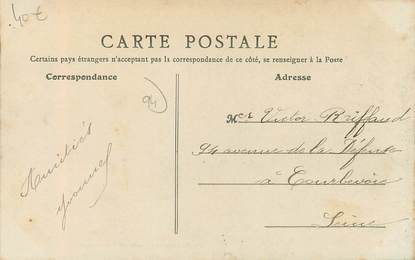 40€
CARTE POSTALE
Certains pays étrangers n'acceptant pas la correspondance de ce côté, se renseigner à la Poste
Correspondance
Adresse
94
Mr Victor Riffaud
94 avenue de la Défense
à Courbevoie
Seine
Amitiés
Yvonne